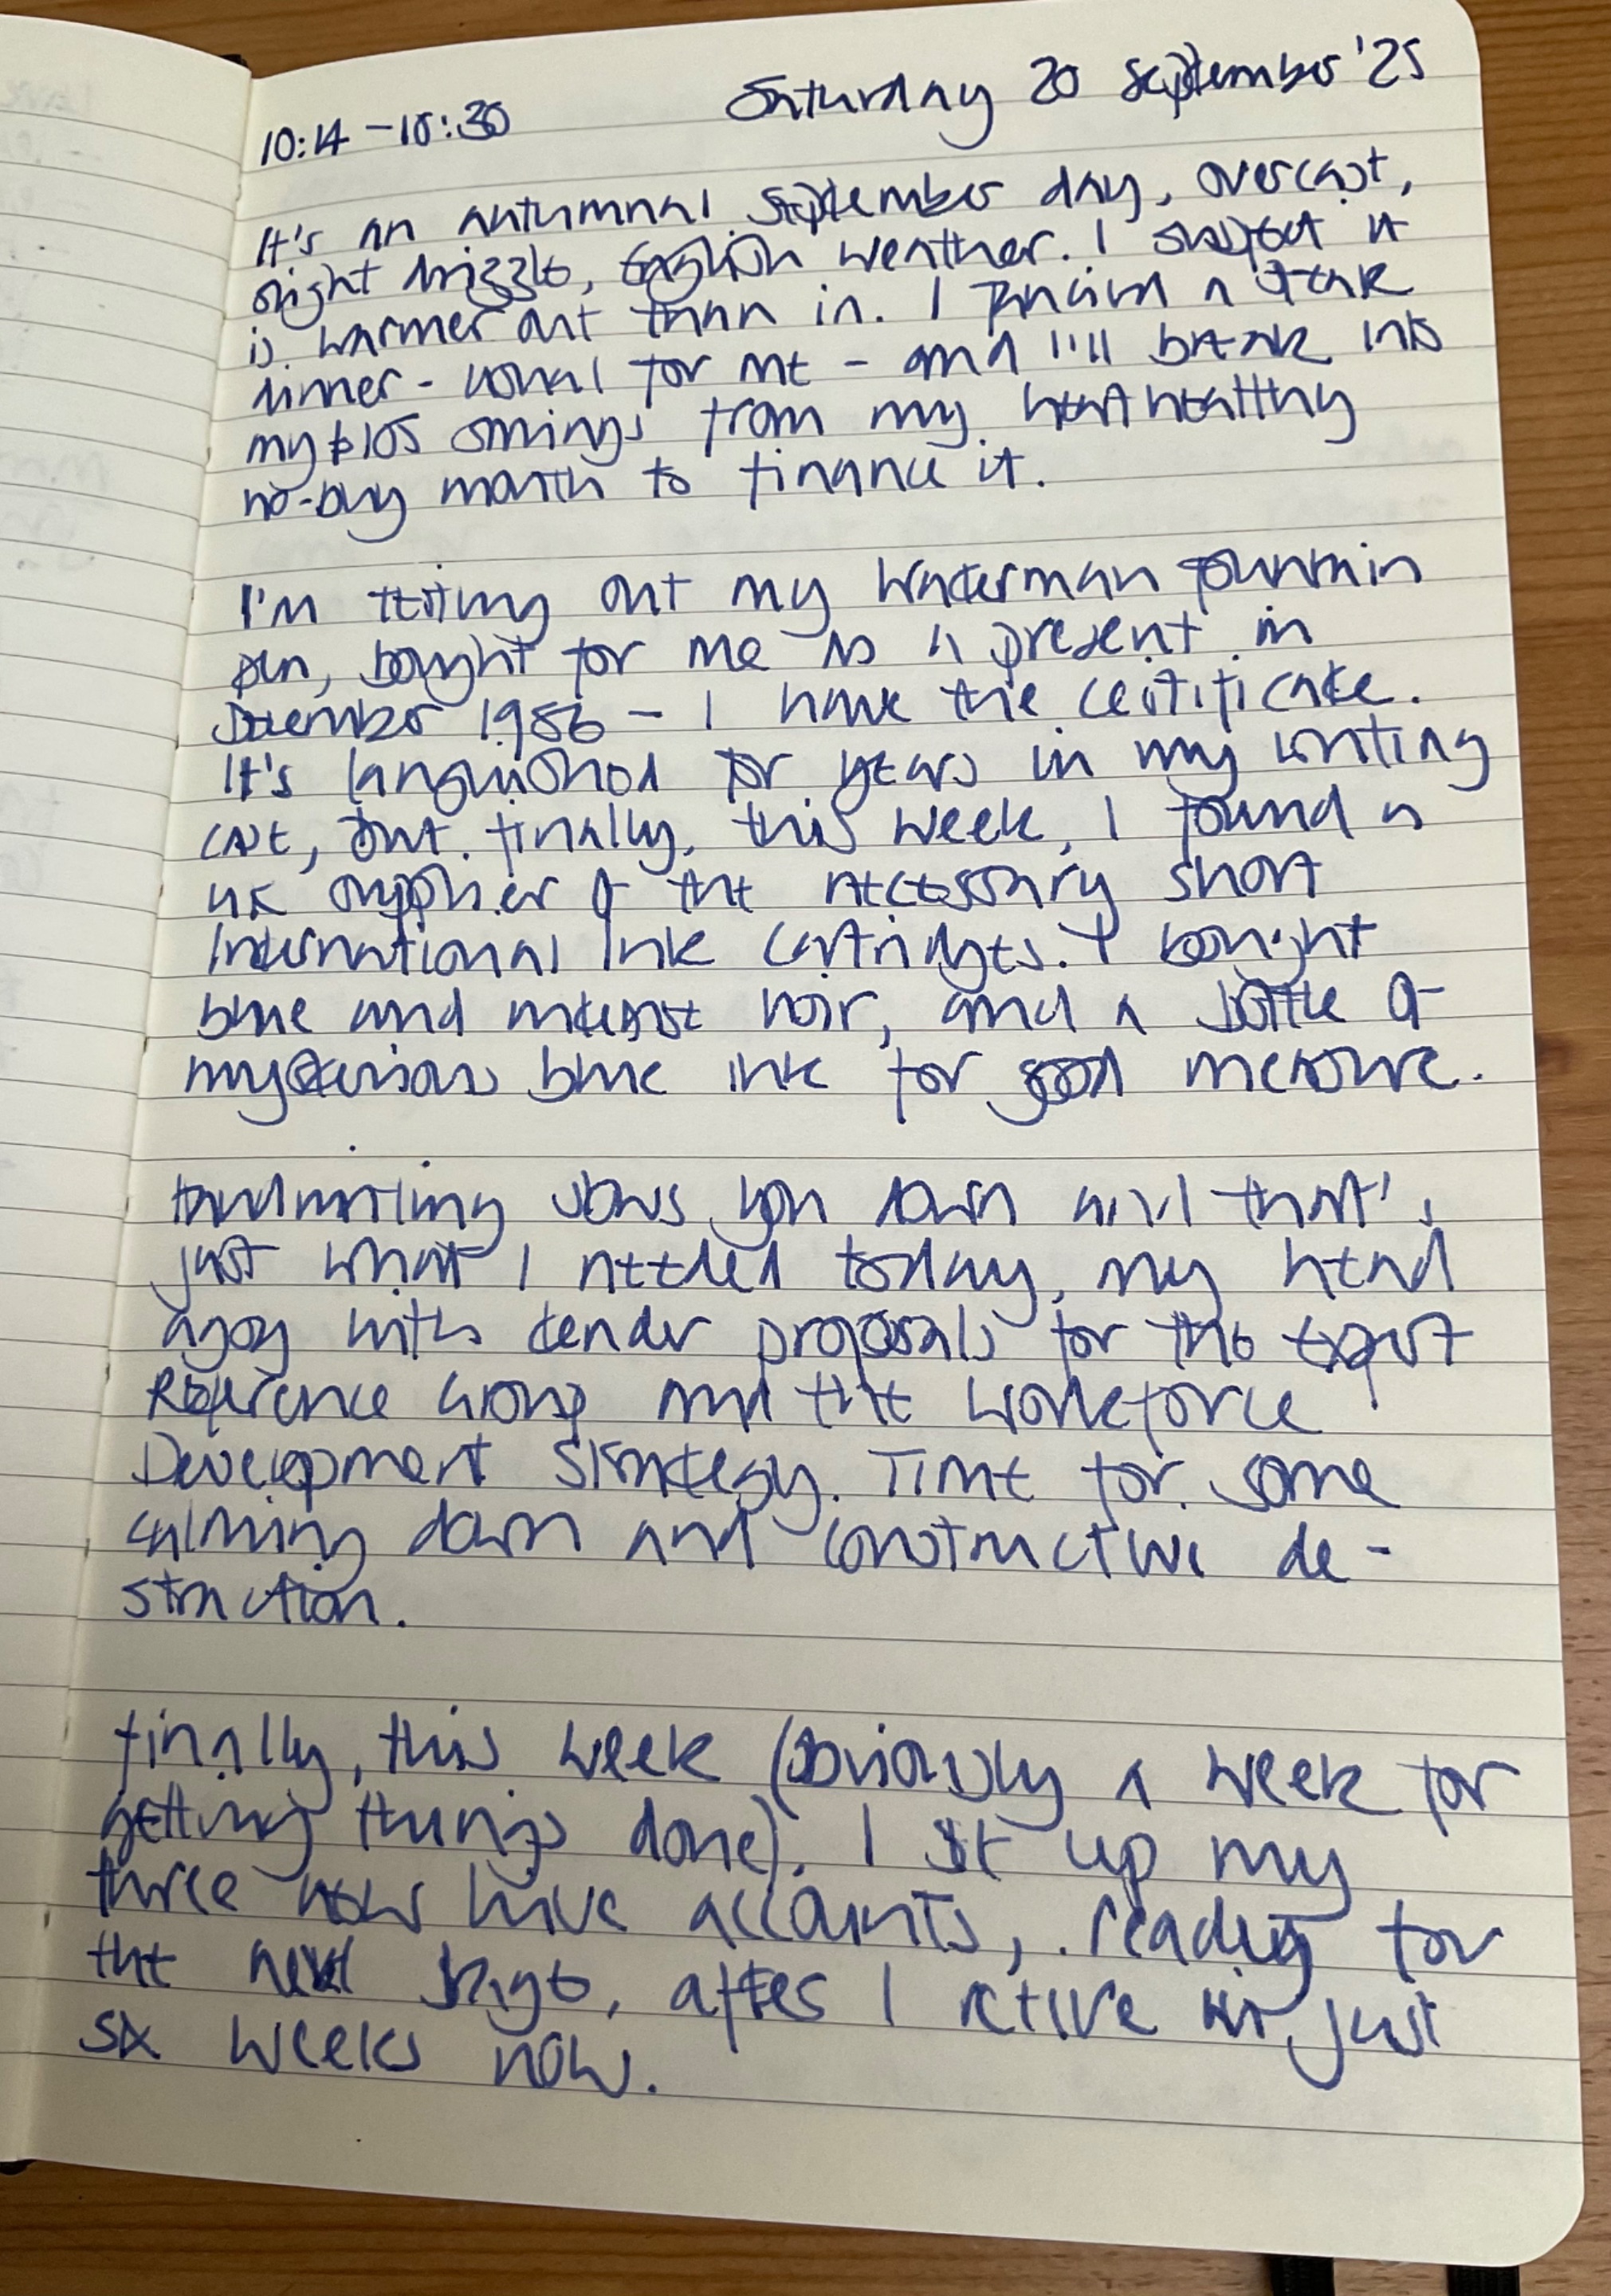 10:14 - 10:30
Saturday 20 September '25
It's an autumnal September day, overcast,
slight drizzle, English weather. I suspect it
is warmer out than in. I fancied a steak
dinner - usual for me - and I'll break into
my £105 savings from my healthy
no-buy month to finance it.
I'm testing out my Waterman fountain
pen, bought for me as a present in
December 1986 - I have the certificate.
It's languished for years in my writing
case, but finally, this week, I found a
UK supplier of the necessary short
International Ink Cartridges. I bought
blue and intense noir, and a bottle of
mysterious blue ink for good measure.
Handwriting slows you down and that's
just what I needed today, my head
agog with tender proposals for the Expert
Reference Group and the Workforce
Development Strategy. Time for some
calming down and constructive de-
struction.
Finally, this week (obviously a week for
getting things done), I set up my
three new hive accounts, ready for
the next stage, after I retire in just
six weeks now.